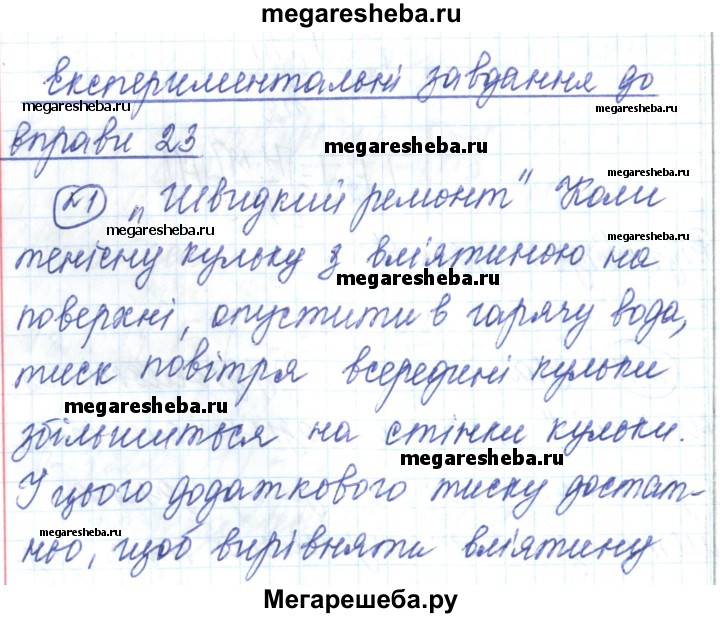 megaresheba.ru
Експериментальні завдання до
megaresheba.ru
megaresheba.ru
вправи 23
megaresheba.ru
№1 „Швидкий ремонт" Коли
megaresheba.ru
megaresheba.ru
тенісну кульку з вм'ятиною на
megaresheba.ru
поверхні, опустити в гарячу вода,
тиск повітря всередині кульки
megaresheba.ru
збільшиться на стінки кульки.
megaresheba.ru
І цього додаткового тиску достат-
megaresheba.ru
ньо, щоб вирівняти вм'ятину
Мегарешеба.ру